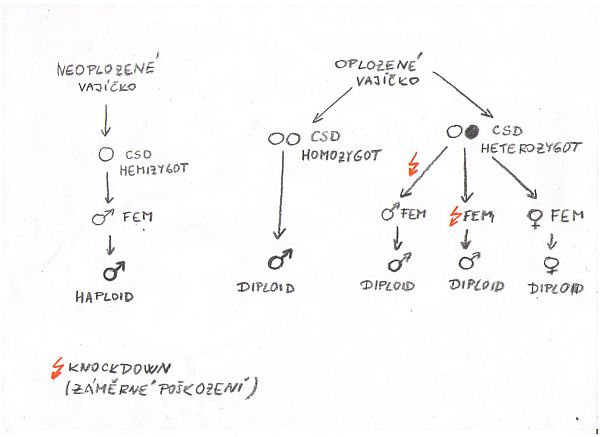 NEOPLOZENÉ
VAJÍČKO
OPLOZENÉ
VAJÍČKO
CSD
HEMIZYGOT
CSD
HOMOZYGOT
CSD
HETEROZYGOT
♂ FEM
♂ FEM
FEM
♀ FEM
♂
♂
♂
♂
♀
HAPLOID
DIPLOID
DIPLOID
DIPLOID
DIPLOID
KNOCKDOWN
(ZÁMĚRNÉ POŠKOZENÍ)